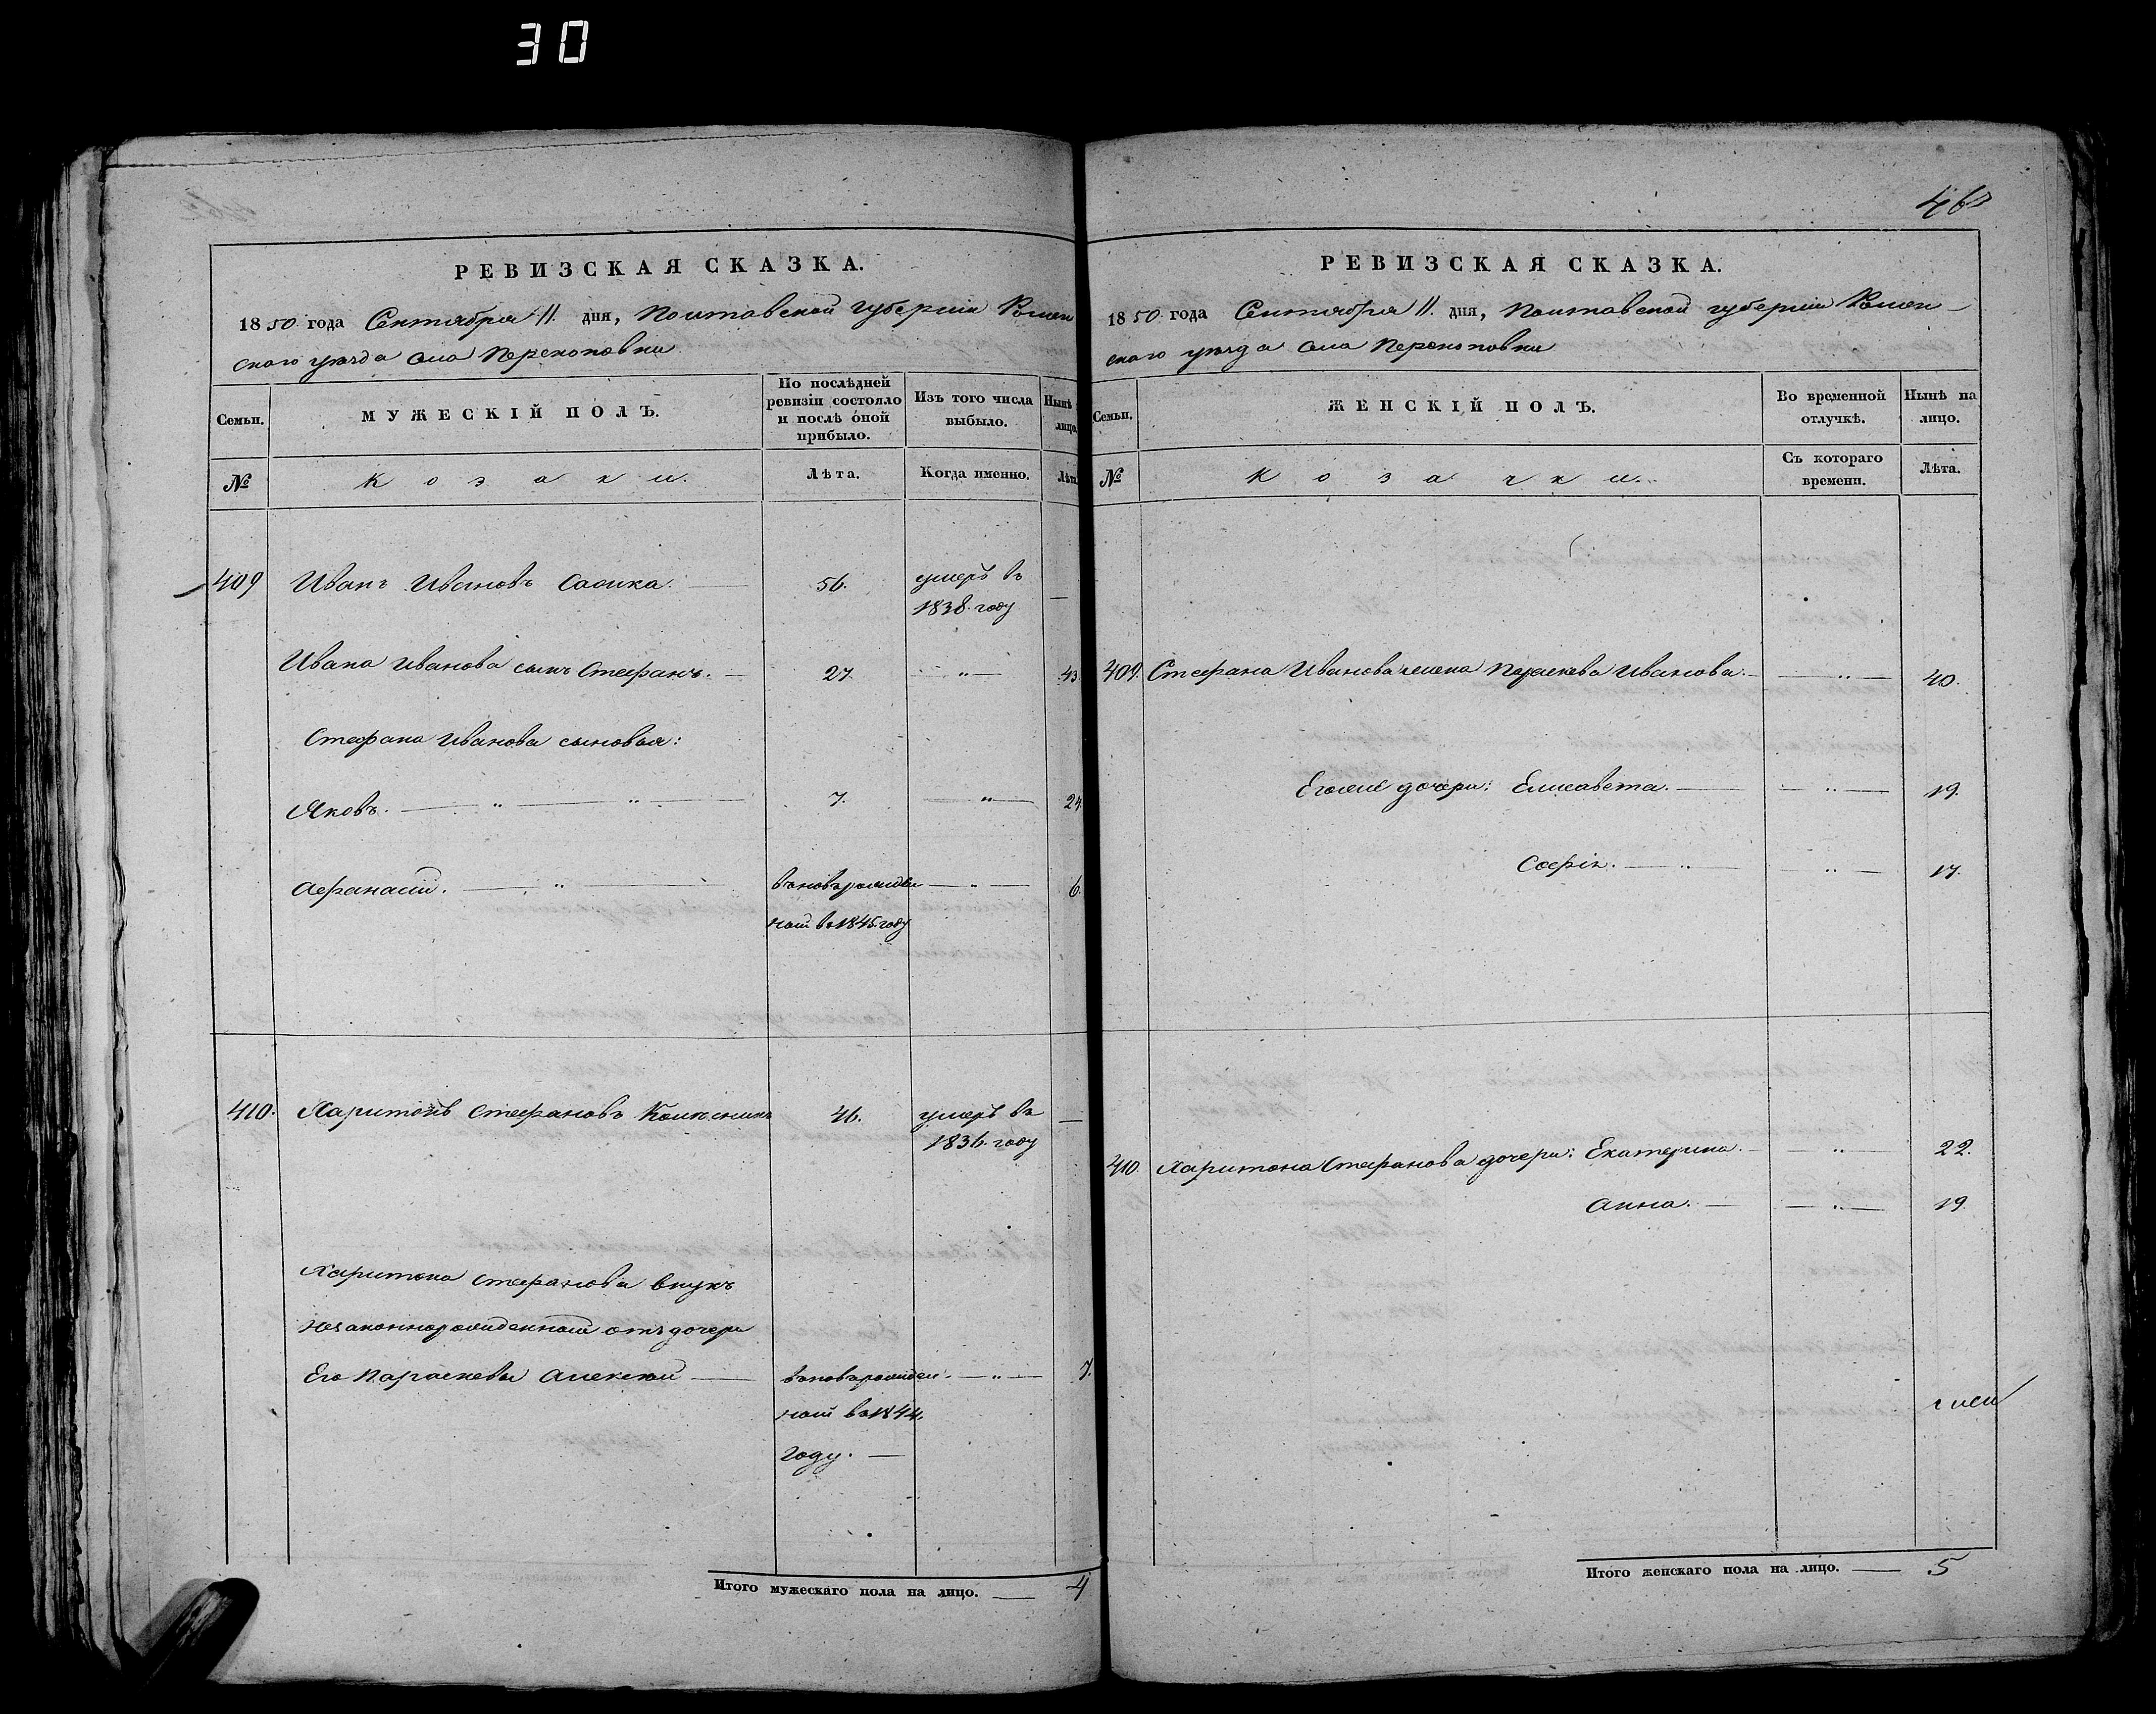 30
РЕВИЗСКАЯ СКАЗКА.
1850 года Сентября 11. дня, Полтавской губерніи Ромен
скаго уѣзда села Перекоповки
Семьи.
МУЖЕСКІЙ ПОЛЪ.
По послѣдней ревизіи состояло и послѣ о́ной прибыло.
Изъ того числа выбыло.
Нынѣ лицо.
№
Козаки.
Лѣта.
Когда именно.
Лѣта
409 Иванъ Ивановъ 56. умеръ въ —
1838. году
Ивана Иванова сынъ Стефанъ. — 27. — „ — 43.
Стефана Иванова сыновья:
Яковъ. — „ — „ — 7. — „ — 24.
Афанасій. — „ — вновьрожден — „ — 6.
ный въ 1845. году
410. Харитонъ Стефановъ Колѣсникъ 46. умеръ въ —
1836. году
Харитона Стефанова внукъ
незаконнорожденный отъ дочери
Его Параскевы Алексѣй — вновьрожден. — „ — 7.
ный въ 1844.
году. —
Итого мужескаго пола на лицо. — 4
РЕВИЗСКАЯ СКАЗКА.
1850 года Сентября 11. дня, Полтавской губерніи Ромен-
скаго уѣзда села Перекоповки
Семьи.
ЖЕНСКІЙ ПОЛЪ.
Во временной отлучкѣ.
Нынѣ на лицо.
№
Козачки.
Съ котораго времени.
Лѣта.
409. Стефана Иванова жена Параскева Иванова. — „ — 40.
Егоже дочери: Елисавета. — — „ — 19.
Софія. — „ — — „ — 17.
410. Харитона Стефанова дочери: Екатерина. — — „ — 22.
Анна. — — „ — 19.
Итого женскаго пола на лицо. — 5